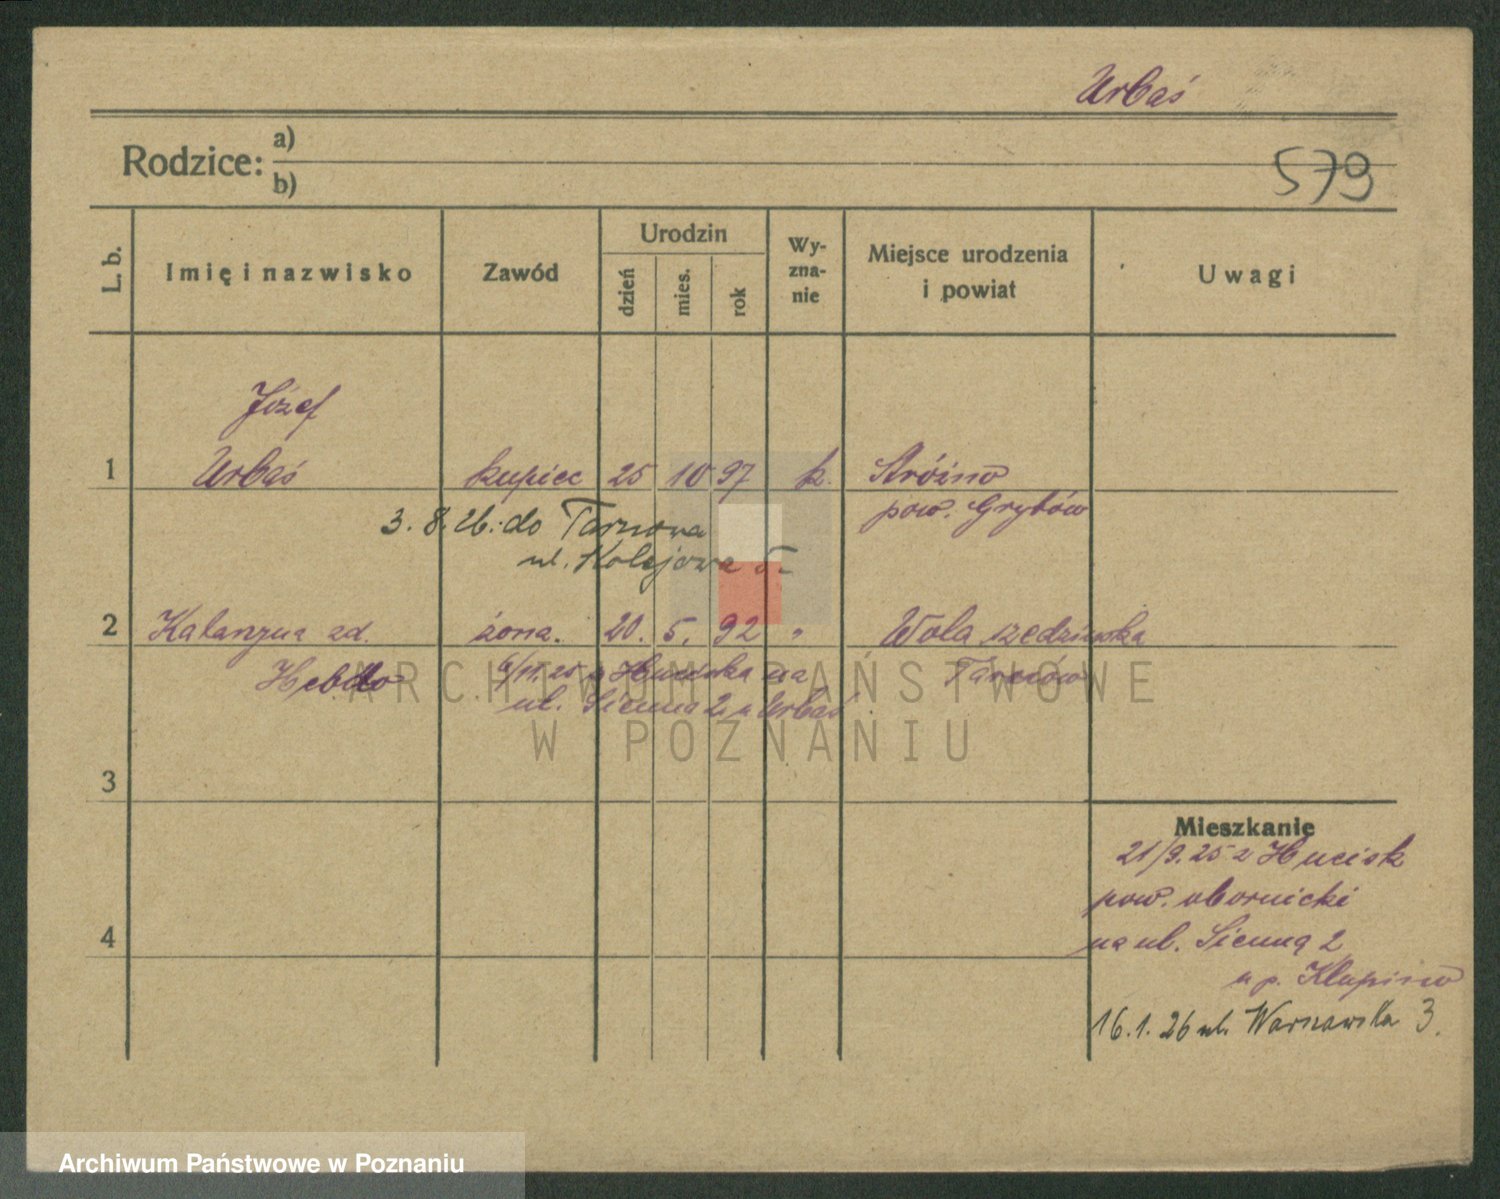 Urbaś
Rodzice: a)
b)
579
L. b.
Imię i nazwisko
Zawód
Urodzin
dzień
mies.
rok
Wy-
zna-
nie
Miejsce urodzenia
i powiat
Uwagi
Józef
1 Urbaś kupiec 25 10 97 k. Stróżno
pow. Grybów
3. 8. 26. do Tarnowa
ul. Kolejowa 5
2 żona. 20. 5. 92 " Wola
Hebdo Tarnów
6/11. 25 z Huciska na
ul. Sienna 2 u Urbaś
3
4
Mieszkanie
21/9. 25 z Hucisk
pow. obornicki
na ul. Sienną 2
u p. Klupino
16. 1. 26 ul. Warszawska 3.
ARCHIWUM PAŃSTWOWE
W POZNANIU
Archiwum Państwowe w Poznaniu